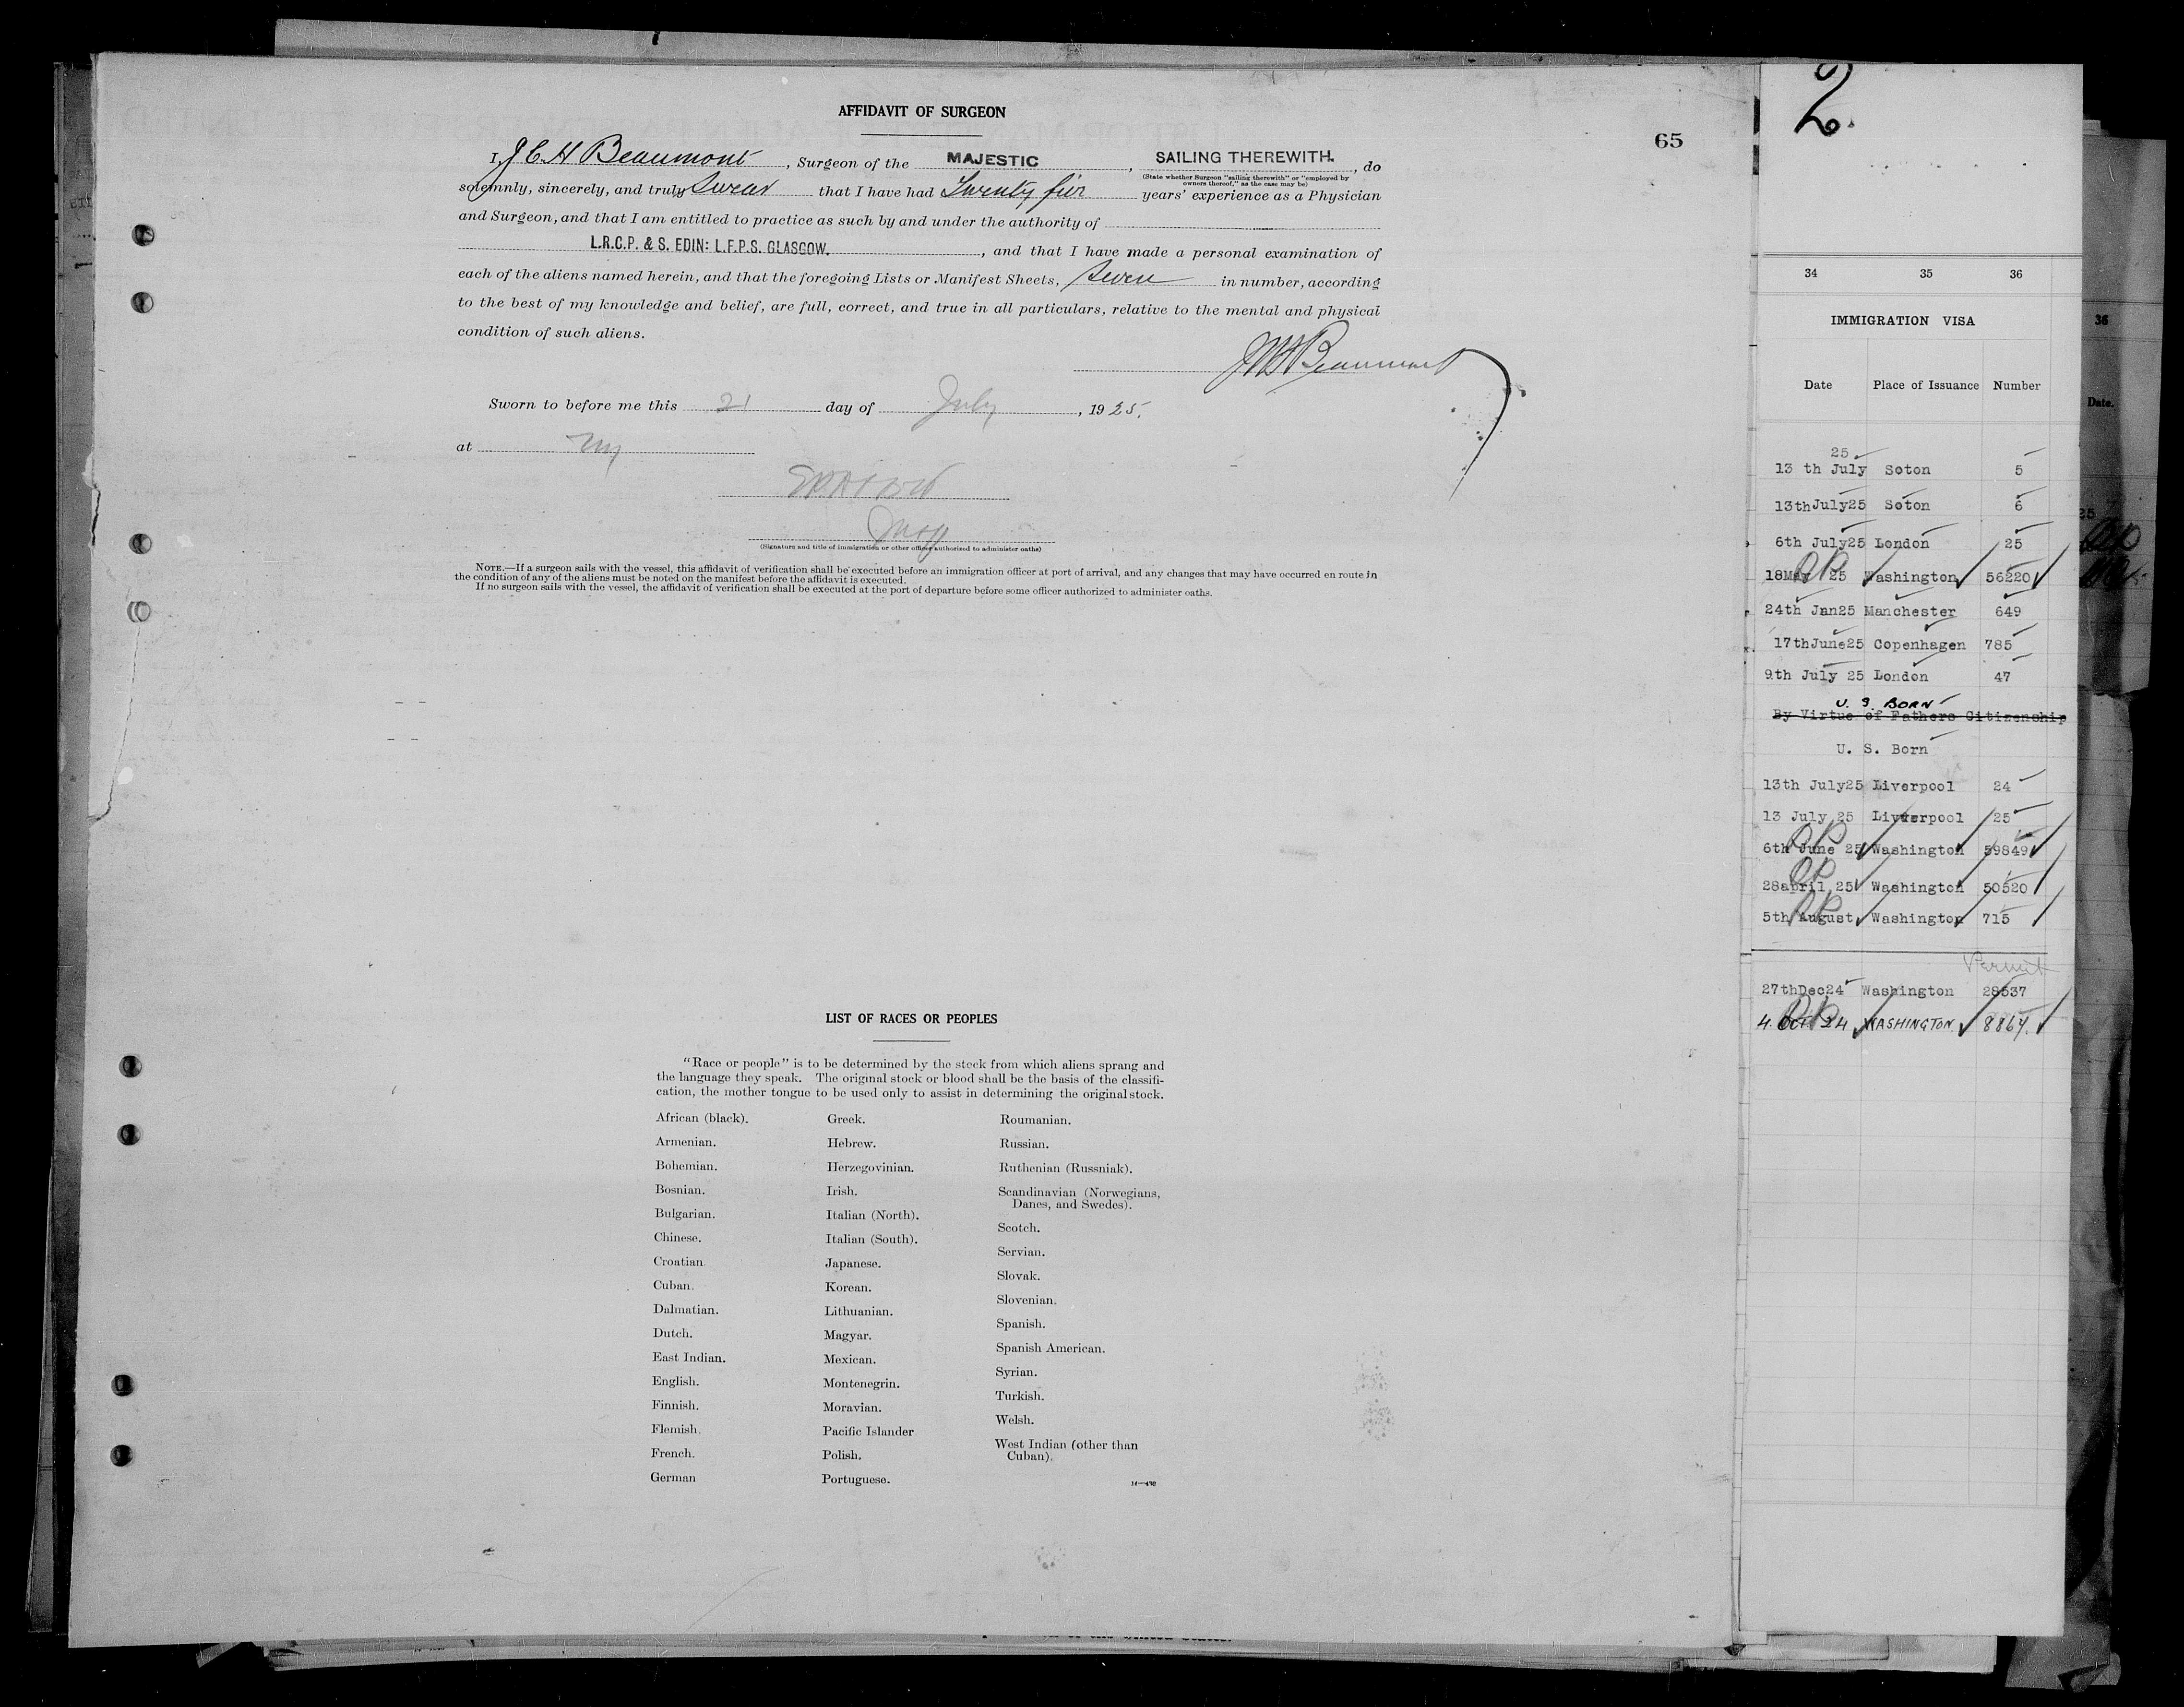 AFFIDAVIT OF SURGEON
65
I, J C. H Beaumont, Surgeon of the MAJESTIC, SAILING THEREWITH., do
(State whether Surgeon "sailing therewith" or "employed by
owners thereof," as the case may be)
solemnly, sincerely, and truly swear that I have had Twenty five years' experience as a Physician
and Surgeon, and that I am entitled to practice as such by and under the authority of
L.R.C.P. & S. EDIN: L.F.P.S. GLASGOW., and that I have made a personal examination of
each of the aliens named herein, and that the foregoing Lists or Manifest Sheets, seven in number, according
to the best of my knowledge and belief, are full, correct, and true in all particulars, relative to the mental and physical
condition of such aliens.
Beaumont
Sworn to before me this 21 day of July, 1925.
at NY
Insp
(Signature and title of immigration or other officer authorized to administer oaths)
NOTE.—If a surgeon sails with the vessel, this affidavit of verification shall be executed before an immigration officer at port of arrival, and any changes that may have occurred en route in
the condition of any of the aliens must be noted on the manifest before the affidavit is executed.
If no surgeon sails with the vessel, the affidavit of verification shall be executed at the port of departure before some officer authorized to administer oaths.
LIST OF RACES OR PEOPLES
"Race or people" is to be determined by the stock from which aliens sprang and
the language they speak. The original stock or blood shall be the basis of the classifi-
cation, the mother tongue to be used only to assist in determining the original stock.
African (black).
Armenian.
Bohemian.
Bosnian.
Bulgarian.
Chinese.
Croatian.
Cuban.
Dalmatian.
Dutch.
East Indian.
English.
Finnish.
Flemish.
French.
German
Greek.
Hebrew.
Herzegovinian.
Irish.
Italian (North).
Italian (South).
Japanese.
Korean.
Lithuanian.
Magyar.
Mexican.
Montenegrin.
Moravian.
Pacific Islander
Polish.
Portuguese.
Roumanian.
Russian.
Ruthenian (Russniak).
Scandinavian (Norwegians,
Danes, and Swedes).
Scotch.
Servian.
Slovak.
Slovenian.
Spanish.
Spanish American.
Syrian.
Turkish.
Welsh.
West Indian (other than
Cuban).
2.
34 35 36
IMMIGRATION VISA
Date Place of Issuance Number
25
13 th July Soton 5
13thJuly25 Soton 6
6th July25 London 25
18May 25 Washington 56220
24th Jan25 Manchester 649
17thJune25 Copenhagen 785
9th July 25 London 47
U. S. BORN
By Virtue of Fathers Citizenship
U. S. Born
13th July25 Liverpool 24
13 July 25 Liverpool 25
6th June 25 Washington 59849
28april 25 Washington 50520
5th August Washington 715
Permit
27thDec24 Washington 28537
4. OCT. 24 WASHINGTON. 8864.
36
Date.
25